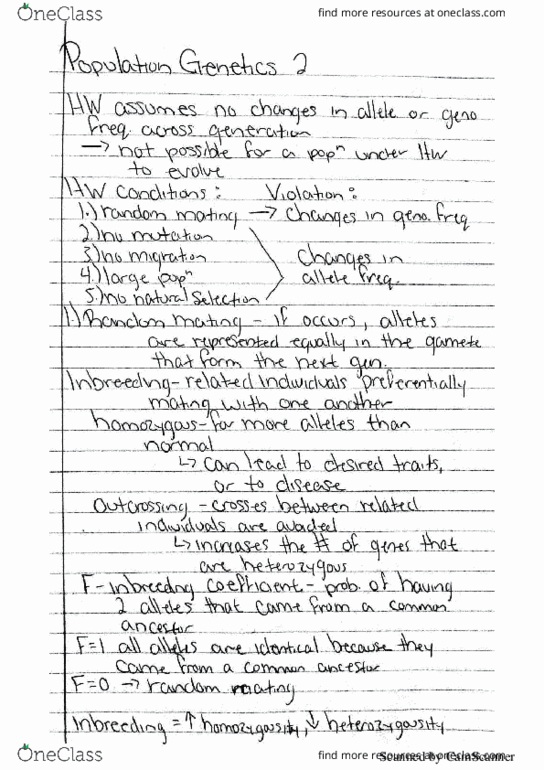 OneClass
find more resources at oneclass.com
Population Genetics 2
HW assumes no changes in allele or geno
freq. across generation
→ not possible for a popⁿ under HW
to evolve
HW conditions: Violation:
1.) random mating → changes in geno. freq
2.) no mutation
3.) no migration changes in
4.) large popⁿ allele freq.
5.) no natural selection
1.) Random mating - if occurs, alleles
are represented equally in the gamete
that form the next gen.
Inbreeding - related individuals preferentially
mating with one another
homozygous - for more alleles than
normal
↳ can lead to desired traits,
or to disease
Outcrossing - crosses between related
individuals are avoided
↳ increases the # of genes that
are heterozygous
F - inbreeding coefficient - prob. of having
2 alleles that came from a common
ancestor
F=1 all alleles are identical because they
came from a common ancestor
F=0 → random mating
Inbreeding = ↑ homozygousity, ↓ heterozygousity
OneClass
find more resources at oneclass.com
Scanned by CamScanner